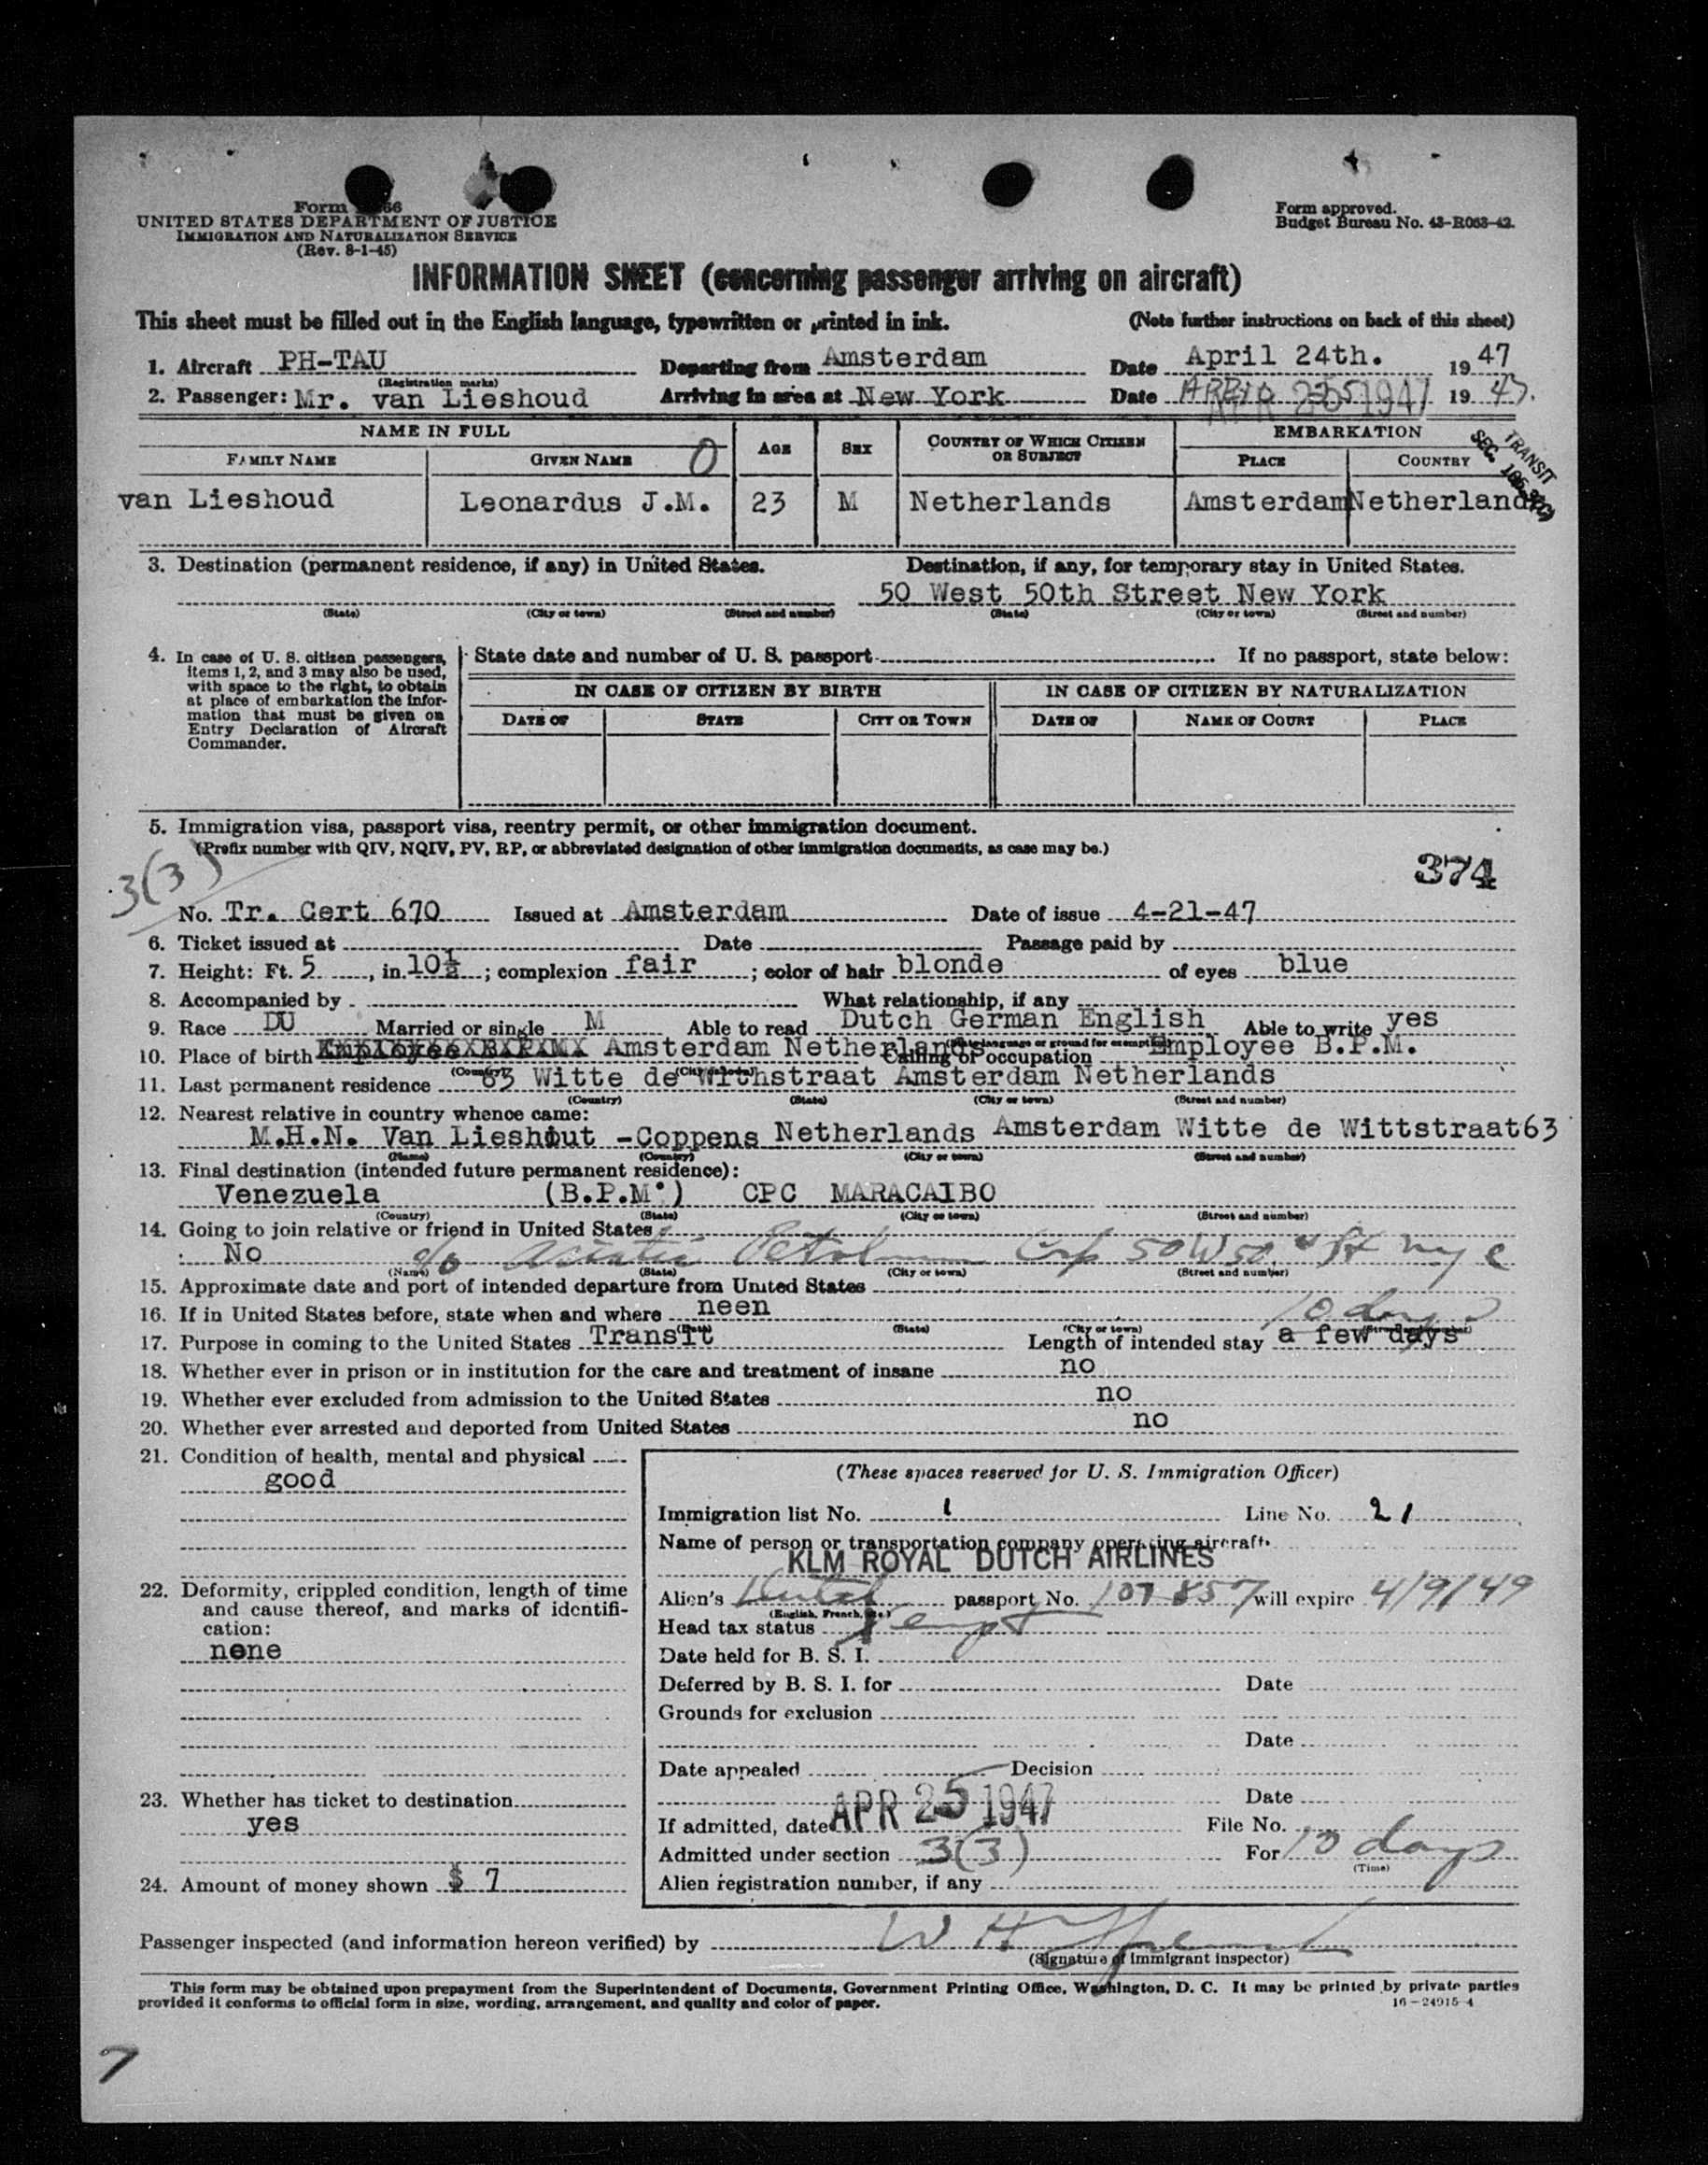 Form 66
UNITED STATES DEPARTMENT OF JUSTICE
IMMIGRATION AND NATURALIZATION SERVICE
(Rev. 8-1-45)
Form approved.
Budget Bureau No. 43-R063-42.
INFORMATION SHEET (concerning passenger arriving on aircraft)
This sheet must be filled out in the English language, typewritten or printed in ink. (Note further instructions on back of this sheet)
1. Aircraft PH-TAU Departing from Amsterdam Date April 24th. 1947
(Registration marks)
2. Passenger: Mr. van Lieshoud Arriving in area at New York Date APR 25 1947 19
NAME IN FULL AGE SEX COUNTRY OF WHICH CITIZEN OR SUBJECT EMBARKATION
FAMILY NAME GIVEN NAME 0 PLACE COUNTRY
TRANSIT
SEC.
van Lieshoud Leonardus J.M. 23 M Netherlands Amsterdam Netherlands
3. Destination (permanent residence, if any) in United States. Destination, if any, for temporary stay in United States.
50 West 50th Street New York
(State) (City or town) (Street and number) (State) (City or town) (Street and number)
4. In case of U. S. citizen passengers, items 1, 2, and 3 may also be used, with space to the right, to obtain at place of embarkation the information that must be given on Entry Declaration of Aircraft Commander.
State date and number of U. S. passport If no passport, state below:
IN CASE OF CITIZEN BY BIRTH IN CASE OF CITIZEN BY NATURALIZATION
DATE OF STATE CITY OR TOWN DATE OF NAME OF COURT PLACE
5. Immigration visa, passport visa, reentry permit, or other immigration document.
(Prefix number with QIV, NQIV, PV, RP, or abbreviated designation of other immigration documents, as case may be.)
3(3)
374
No. Tr. Cert 670 Issued at Amsterdam Date of issue 4-21-47
6. Ticket issued at Date Passage paid by
7. Height: Ft. 5, in. 10½; complexion fair; color of hair blonde of eyes blue
8. Accompanied by What relationship, if any
9. Race DU Married or single M Able to read Dutch German English Able to write yes
10. Place of birth Amsterdam Netherland Calling or occupation Employee B.P.M.
11. Last permanent residence 63 Witte de Withstraat Amsterdam Netherlands
(Country) (State) (City or town) (Street and number)
12. Nearest relative in country whence came:
M.H.N. Van Lieshout -Coppens Netherlands Amsterdam Witte de Wittstraat63
(Name) (Country) (City or town) (Street and number)
13. Final destination (intended future permanent residence):
Venezuela (B.P.M.) CPC MARACAIBO
(Country) (State) (City or town) (Street and number)
14. Going to join relative or friend in United States
No c/o Asiatic Petroleum Corp 50 W 50th St nyc
(Name) (State) (City or town) (Street and number)
15. Approximate date and port of intended departure from United States
16. If in United States before, state when and where neen
10 days
(State) (City or town)
17. Purpose in coming to the United States Transit Length of intended stay a few days
18. Whether ever in prison or in institution for the care and treatment of insane no
19. Whether ever excluded from admission to the United States no
20. Whether ever arrested and deported from United States no
21. Condition of health, mental and physical
good
22. Deformity, crippled condition, length of time and cause thereof, and marks of identification:
none
23. Whether has ticket to destination
yes
24. Amount of money shown $ 7
(These spaces reserved for U. S. Immigration Officer)
Immigration list No. 1 Line No. 21
Name of person or transportation company operating aircraft
KLM ROYAL DUTCH AIRLINES
Alien's Dutch passport No. 107857 will expire 4/9/49
(English, French, etc.)
Head tax status Xempt
Date held for B. S. I.
Deferred by B. S. I. for Date
Grounds for exclusion
Date
Date appealed Decision
Date
If admitted, date APR 25 1947 File No.
Admitted under section 3(3) For 10 days
(Time)
Alien registration number, if any
Passenger inspected (and information hereon verified) by W H
(Signature of immigrant inspector)
This form may be obtained upon prepayment from the Superintendent of Documents, Government Printing Office, Washington, D. C. It may be printed by private parties
provided it conforms to official form in size, wording, arrangement, and quality and color of paper. 16-24915-4
7